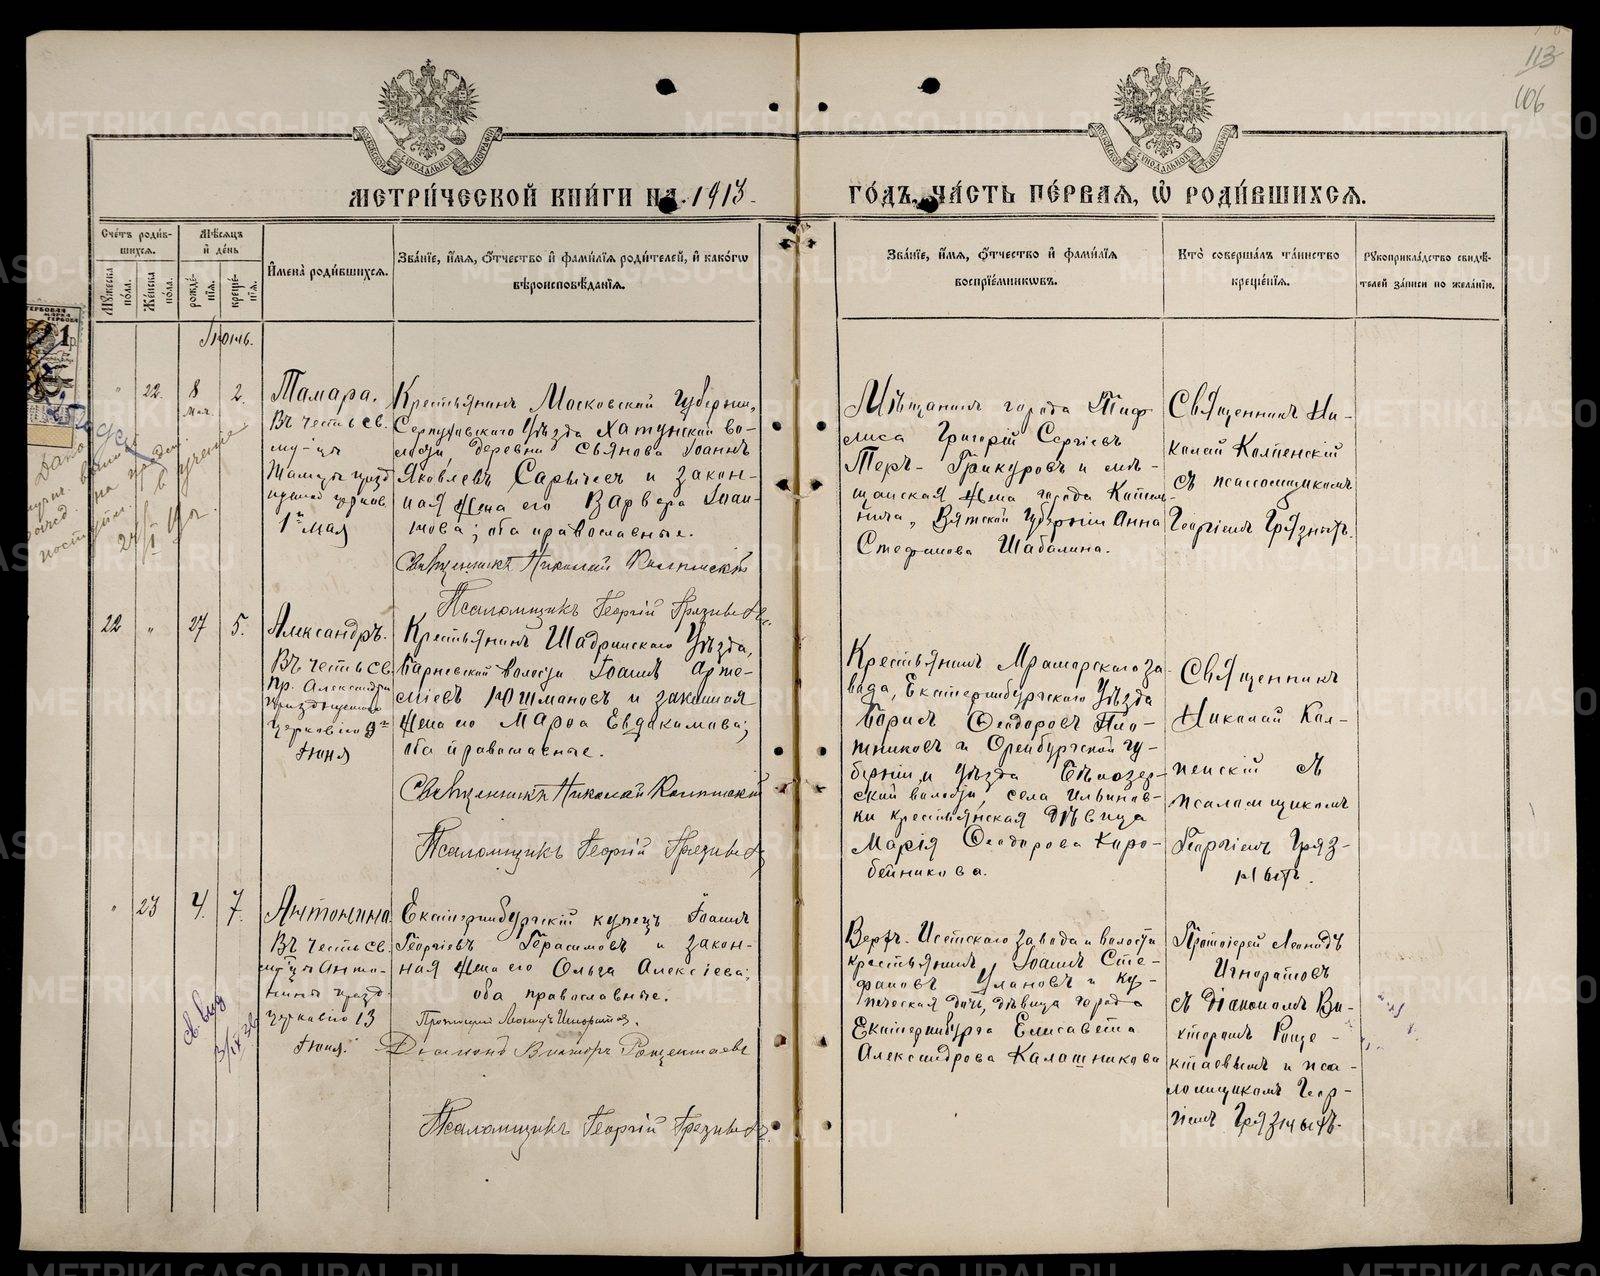 113
106
МЕТРИ́ЧЕСКОЙ КНИ́ГИ НА 1913
ГО́ДЪ, ЧА́СТЬ ПЕ́РВАЯ, Ѡ҆ РОДИ́ВШИХСЯ.
Сче́тъ роди́в-
шихся.
Мѹ́жеска по́ла.
Же́нска по́ла.
Мѣ́сяцъ и҆ де́нь
рожде́нїя.
креще́нїя.
И҆мена̀ роди́вшихся.
Зва́нїе, и҆́мя, ѻ҆́тчество и҆ фами́лїя роди́телей, и҆ како́гѡ
вѣроисповѣ́данїя.
Зва́нїе, и҆́мя, ѻ҆́тчество и҆ фами́лїя
воспрїе́мникѡвъ.
Кто̀ соверша́лъ та́инство
креще́нїя.
Рѹкоприкла́дство свидѣ́-
телей за́писи по жела́нїю.
Іюнь.
" 22. 8 мая. 2.
Тамара.
Въ честь св.
му-цы
Тамары празд
1го мая
Крестьянинъ Московской Губерніи,
Серпуховскаго Уѣзда Хатунской во-
лости, деревни Сьянова Іоаннъ
Яковлевъ Сарычевъ и закон-
ная жена его Варвара Іоан-
нова; оба православные.
Священникъ Николай Колпенскій
Псаломщикъ Георгій Грязныхъ
Мѣщанинъ города Тиф
лиса Григорій Сергіевъ
Теръ-Грикуровъ и мѣ-
щанская жена города Котель-
нича, Вятской Губерніи Анна
Стефанова Шабалина.
Священникъ Ни-
колай Колпенскій
съ псаломщикомъ
Георгіемъ Грязныхъ.
22 " 27 5.
Александръ.
Въ честь св.
пр. Александра
празднуемаго
церковію 9го
Іюня
Крестьянинъ Шадринскаго Уѣзда,
Барневской волости Іоаннъ Арте-
міевъ Юшмановъ и законная
жена его Марѳа Евдокимова;
оба православные.
Священникъ Николай Колпенскій
Псаломщикъ Георгій Грязныхъ
Крестьянинъ Мраморскаго за-
вода, Екатеринбургскаго Уѣзда
Борисъ Ѳеодоровъ Пло-
тниковъ и Оренбургской гу-
берніи и Уѣзда Бѣлозер-
ской волости, села Ильинов-
ки крестьянская дѣвица
Марія Ѳеодорова Коро-
бейникова.
Священникъ
Николай Кол-
пенскій съ
псаломщикомъ
Георгіемъ Гряз-
ныхъ.
" 23 4. 7.
Антонина.
Въ честь св.
му-цы Анто-
нины празд.
церковію 13
Іюня.
Екатеринбургскій купецъ Іоаннъ
Георгіевъ Герасимовъ и закон-
ная жена его Ольга Алексіева;
оба православные.
Протоіерей Леонидъ Игноратовъ.
Діаконъ Викторъ Рощектаевъ
Псаломщикъ Георгій Грязныхъ.
Верхъ-Исетскаго завода и волости
крестьянинъ Іоаннъ Сте-
фановъ Улановъ и ку-
печеская дочь, дѣвица города
Екатеринбурга Елисавета
Александрова Калашникова
Протоіерей Леонидъ
Игноратовъ
съ діакономъ Ви-
кторомъ Роще-
ктаевымъ и пса-
ломщикомъ Геор-
гіемъ Грязныхъ.
св. выд
3/IX 36